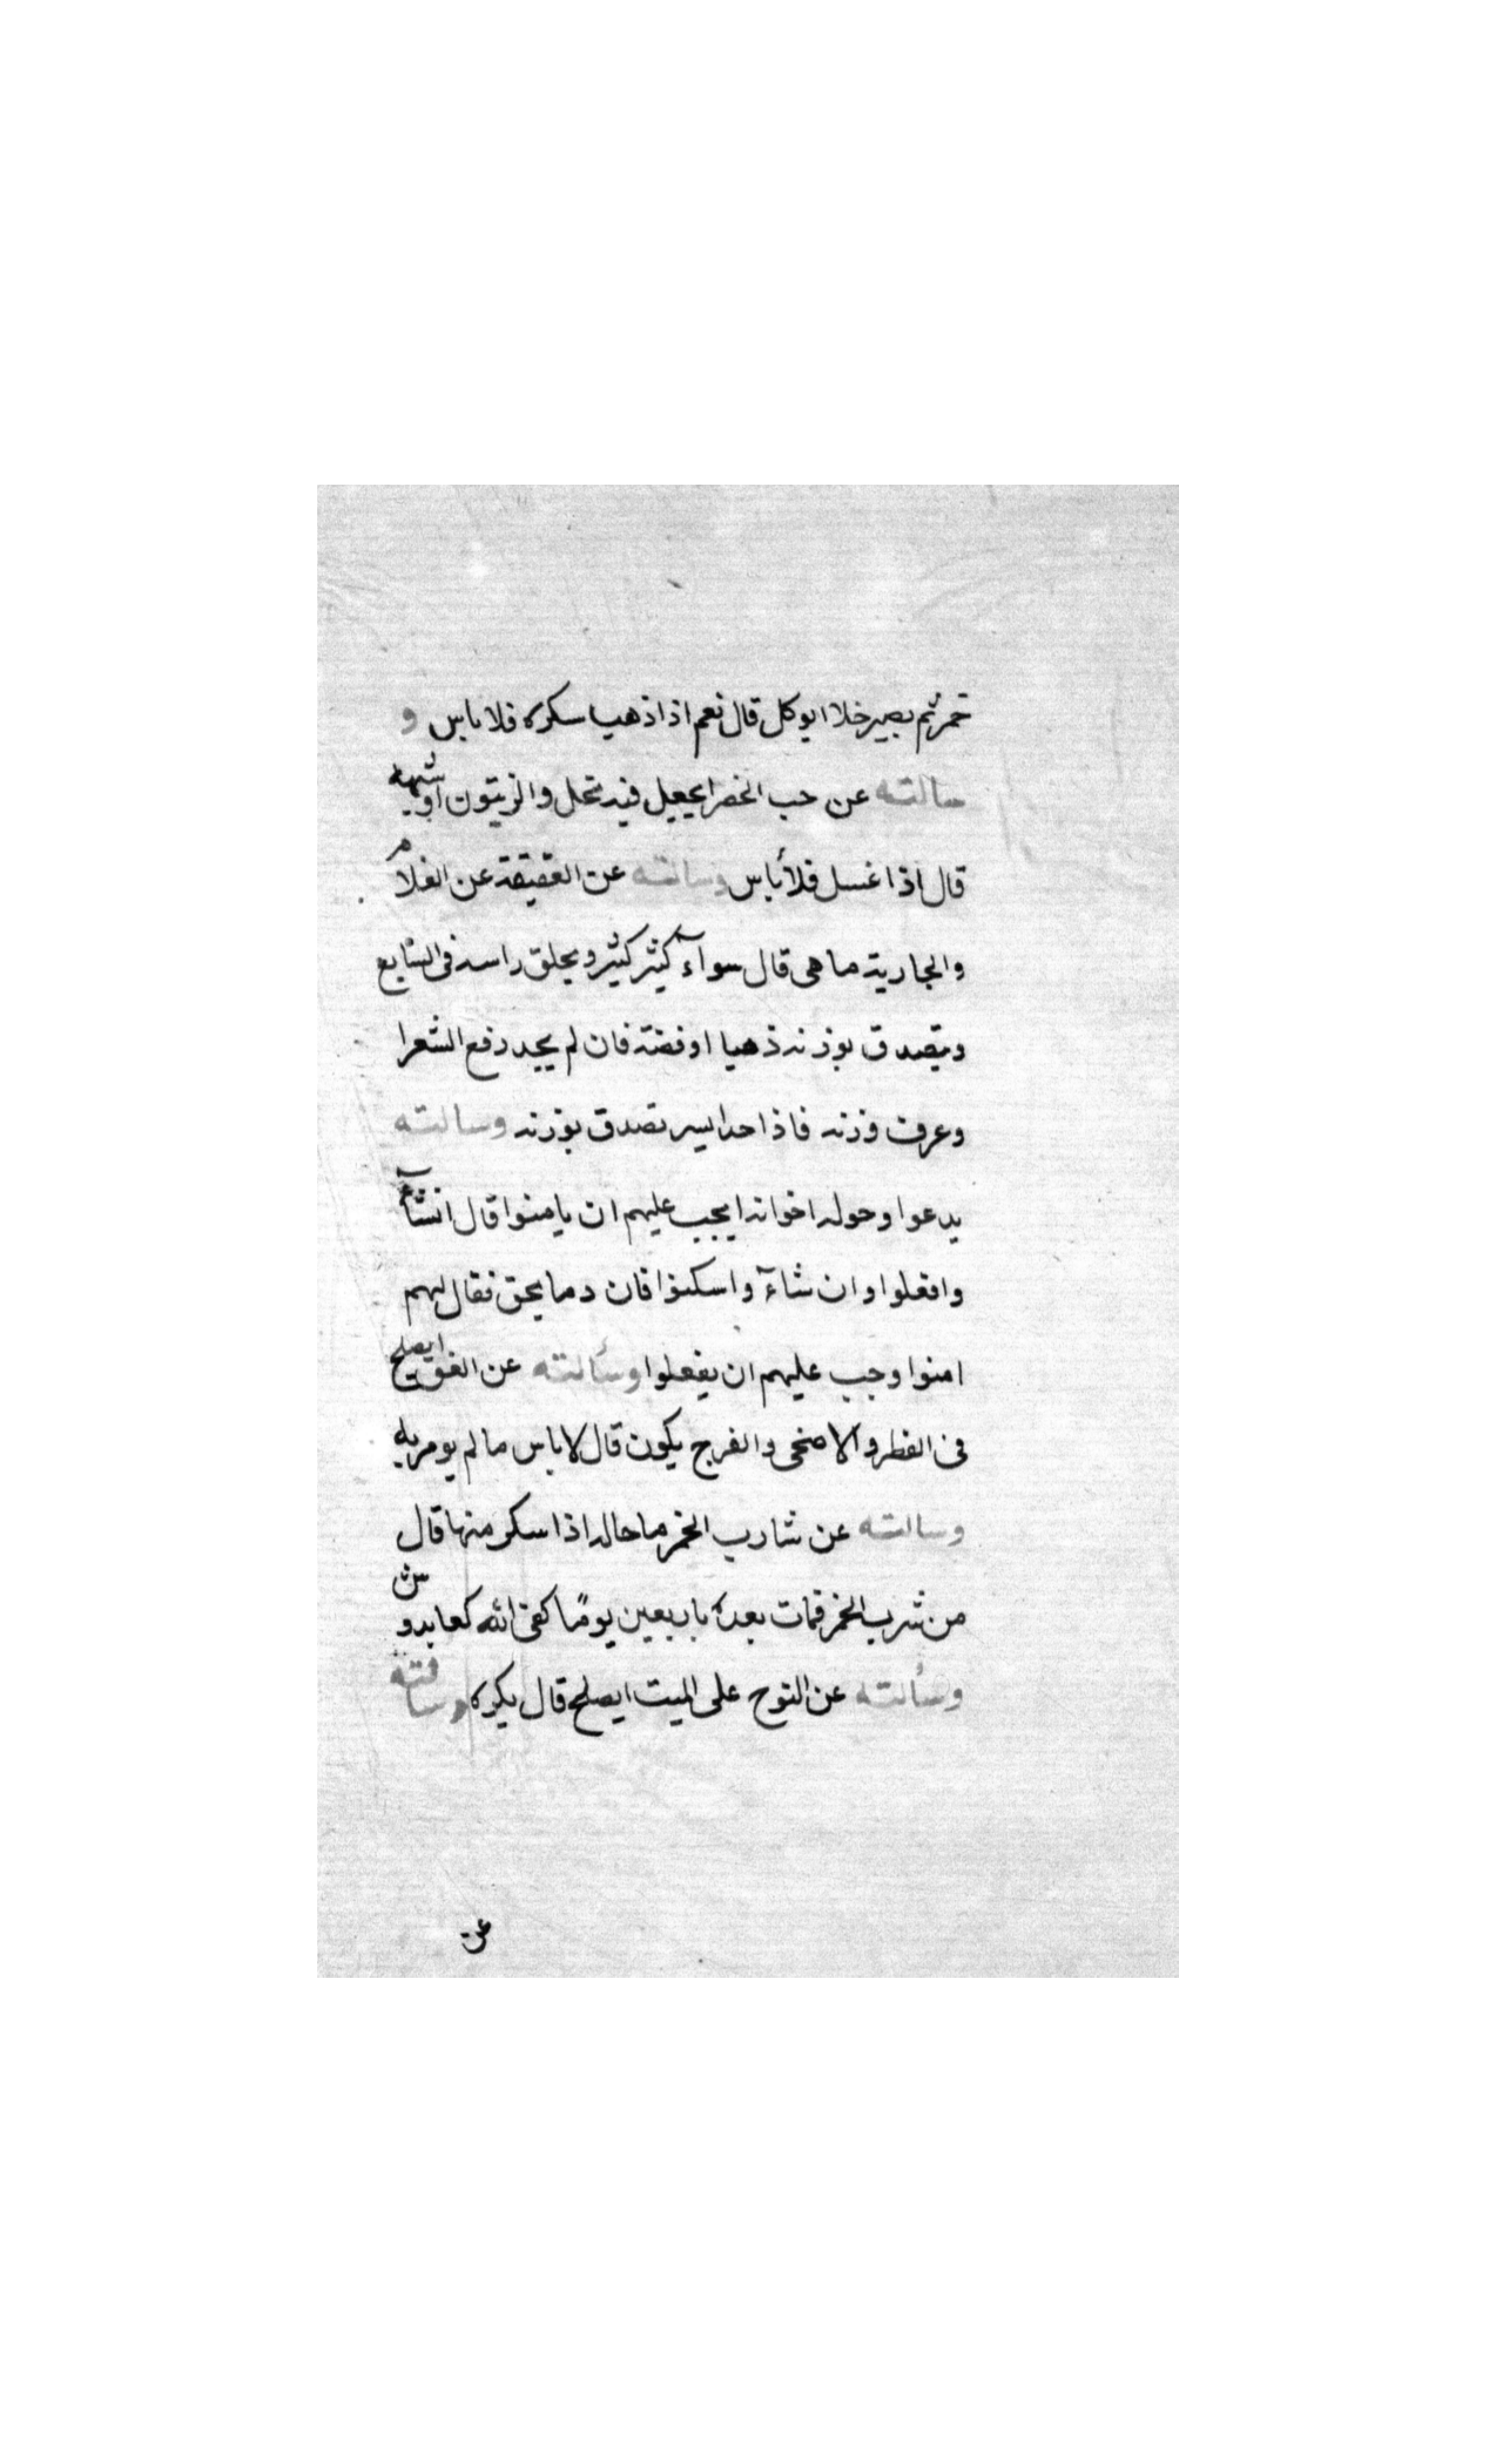 خمر ثم يصير خلا ايوكل قال نعم اذا ذهب سكره فلا باس و
سالته عن حب الخضرا يجعل فيه تحل والزيتون او شبهه
قال اذا غسل فلا بأس وسالته عن العقيقة عن الغلام
والجارية ما هى قال سوآء كبش كبش ويحلق راسه فى السابع
ويتصدق بوزنه ذهبا او فضة فان لم يجد رفع الشعرا
وعرف وزنه فاذا ايسر تصدق بوزنه وسالته
يدعوا وحوله اخوانه ايجب عليهم ان يامنوا قال ان شآء
وافعلوا وان شآء واسكتوا فان دعا بحق فقال لهم
امنوا وجب عليهم ان يفعلوا وسألته عن ايصلح
فى الفطر والاضحى والفرح يكون قال لا باس ما لم يومر به
وسالته عن شارب الخمر ما حاله اذا سكر منها قال
من شرب الخمر فمات بعده باربعين يومًا لقى الله كعابد وثن
وسألته عن النوح على الميت ايصلح قال يكره وسالته
عن